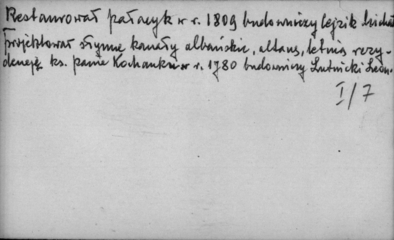 Restaurował pałacyk w r. 1809 budowniczy Lejzik Michał
projektował słynne kanały albańskie, altanę, letnią rezy-
dencję ks. panie Kochanku w r. 1780 budowniczy Lutnicki Leon.
I/7